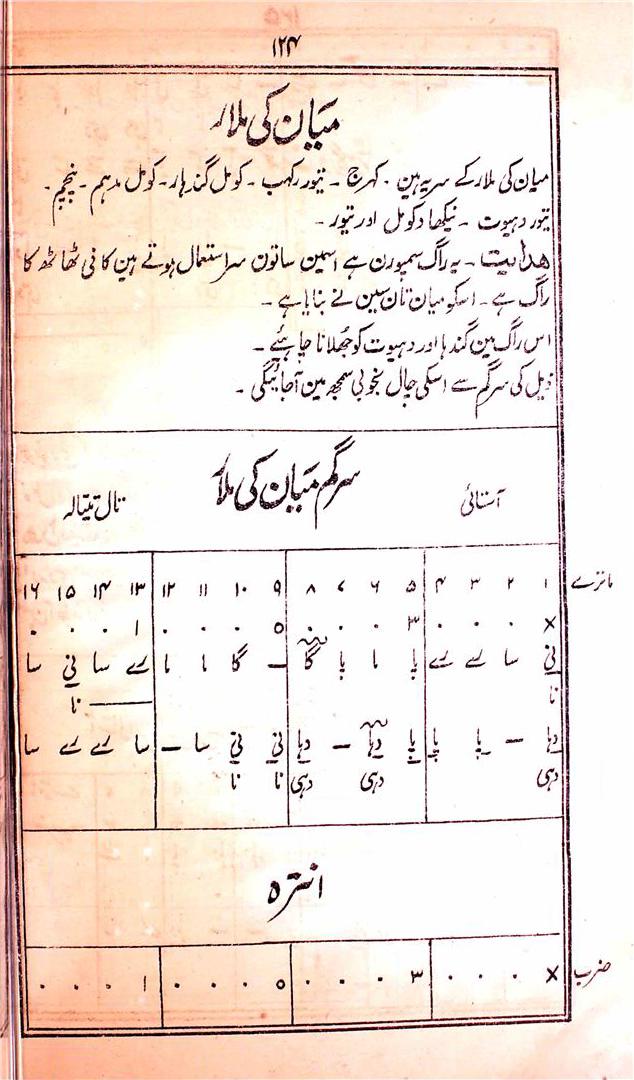 ۱۲۴
میان کی ملار
میان کی ملار کے سر یہ ہین ۔ کہرج ۔ تیور رکھب ۔ کومل گندہار ۔ کومل مدہم ۔ پنچم ۔
تیور دہیوت ۔ نیکھاد کومل اور تیور ۔
ھدایت ۔ یہ راگ سمپورن ہے اسمین ساتون سر استعمال ہوتے ہین کافی ٹھاٹھ کا
راگ ہے ۔ اسکو میان تان سین نے بنایا ہے ۔
اس راگ مین گندہار اور دہیوت کو جُھلانا چاہئے ۔
ذیل کی سرگم سے اسکی چال بخوبی سمجھ مین آجائیگی ۔
آستائی
سرگم میان کی ملار
تال تیتالہ
ماترے ۱ ۲ ۳ ۴ ۵ ۶ ۷ ۸ ۹ ۱۰ ۱۱ ۱۲ ۱۳ ۱۴ ۱۵ ۱۶
× ۰ ۰ ۰ ۳ ۰ ۰ ۰ ٥ ۰ ۰ ۰ ۱ ۰ ۰ ۰
نی سا رے رے پا ما پا گا — گا ما ما رے سا نی سا
نا نا
دہا — پا پا پا دہا — دہا نی نی سا — سا رے رے سا
دہی دہی دہی نا نا
انترہ
ضرب × ۰ ۰ ۰ ۳ ۰ ۰ ۰ ٥ ۰ ۰ ۰ ۱ ۰ ۰ ۰